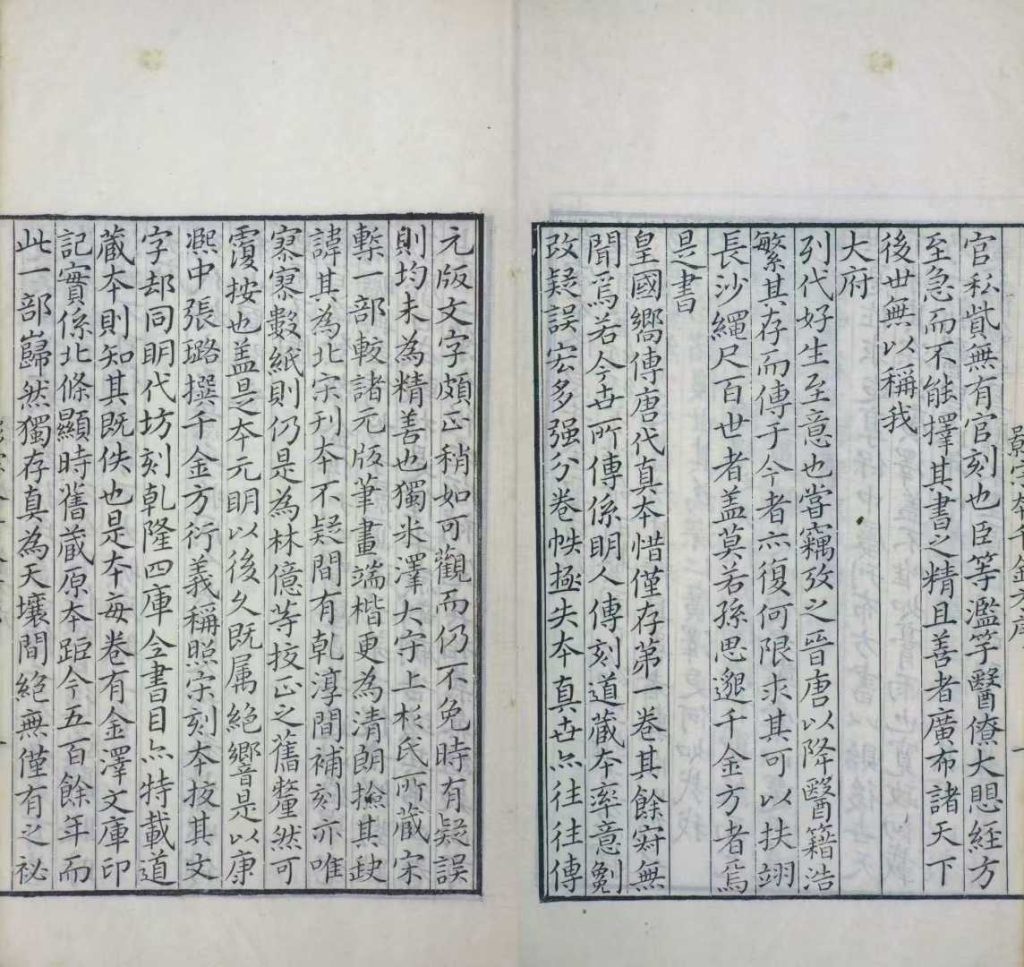 影宋本千金方序 一
官私貲無有官刻也臣等濫竽醫僚大愳経方
至急而不能擇其書之精且善者廣布諸天下
後世無以稱我
大府
列代好生至意也嘗竊攷之晉唐以降醫籍浩
繁其存而傳于今者亦復何限求其可以扶翊
長沙繩尺百世者盖莫若孫思邈千金方者焉
是書
皇國嚮傳唐代真本惜僅存第一卷其餘寂無
聞焉若今世所傳係明人傳刻道藏本率意剜
改疑誤宏多强分卷帙極失本真世亦往往傳
元版文字頗正稍如可觀而仍不免時有疑誤
則均未為精善也獨米澤大守上杉氏所藏宋
槧一部較諸元版筆畫端楷更為清朗撿其缺
諱其為北宋刊本不疑間有乹淳間補刻亦唯
寥寥數紙則仍是為林億等挍正之舊釐然可
覆按也盖是本元明以後久既属絶響是以康
凞中張璐撰千金方衍義稱照宋刻本挍其文
字却同明代坊刻乹隆四庫全書目亦特載道
藏本則知其既佚也是本每卷有金澤文庫印
記實係北條顯時舊藏原本距今五百餘年而
此一部巋然獨存真為天壤間絶無僅有之祕